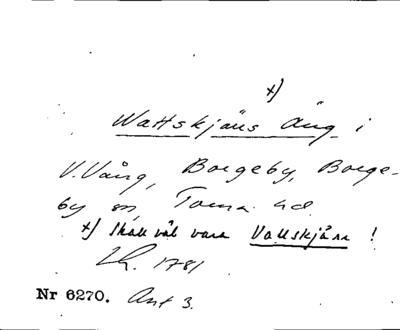 x)
Wattskjäns Äng i
V. Vång, Borgeby, Borge-
by sn, Torna hd.
x) Skall väl vara Vallskjärr !
Lh. 1781
Nr 6270. Ant 3.